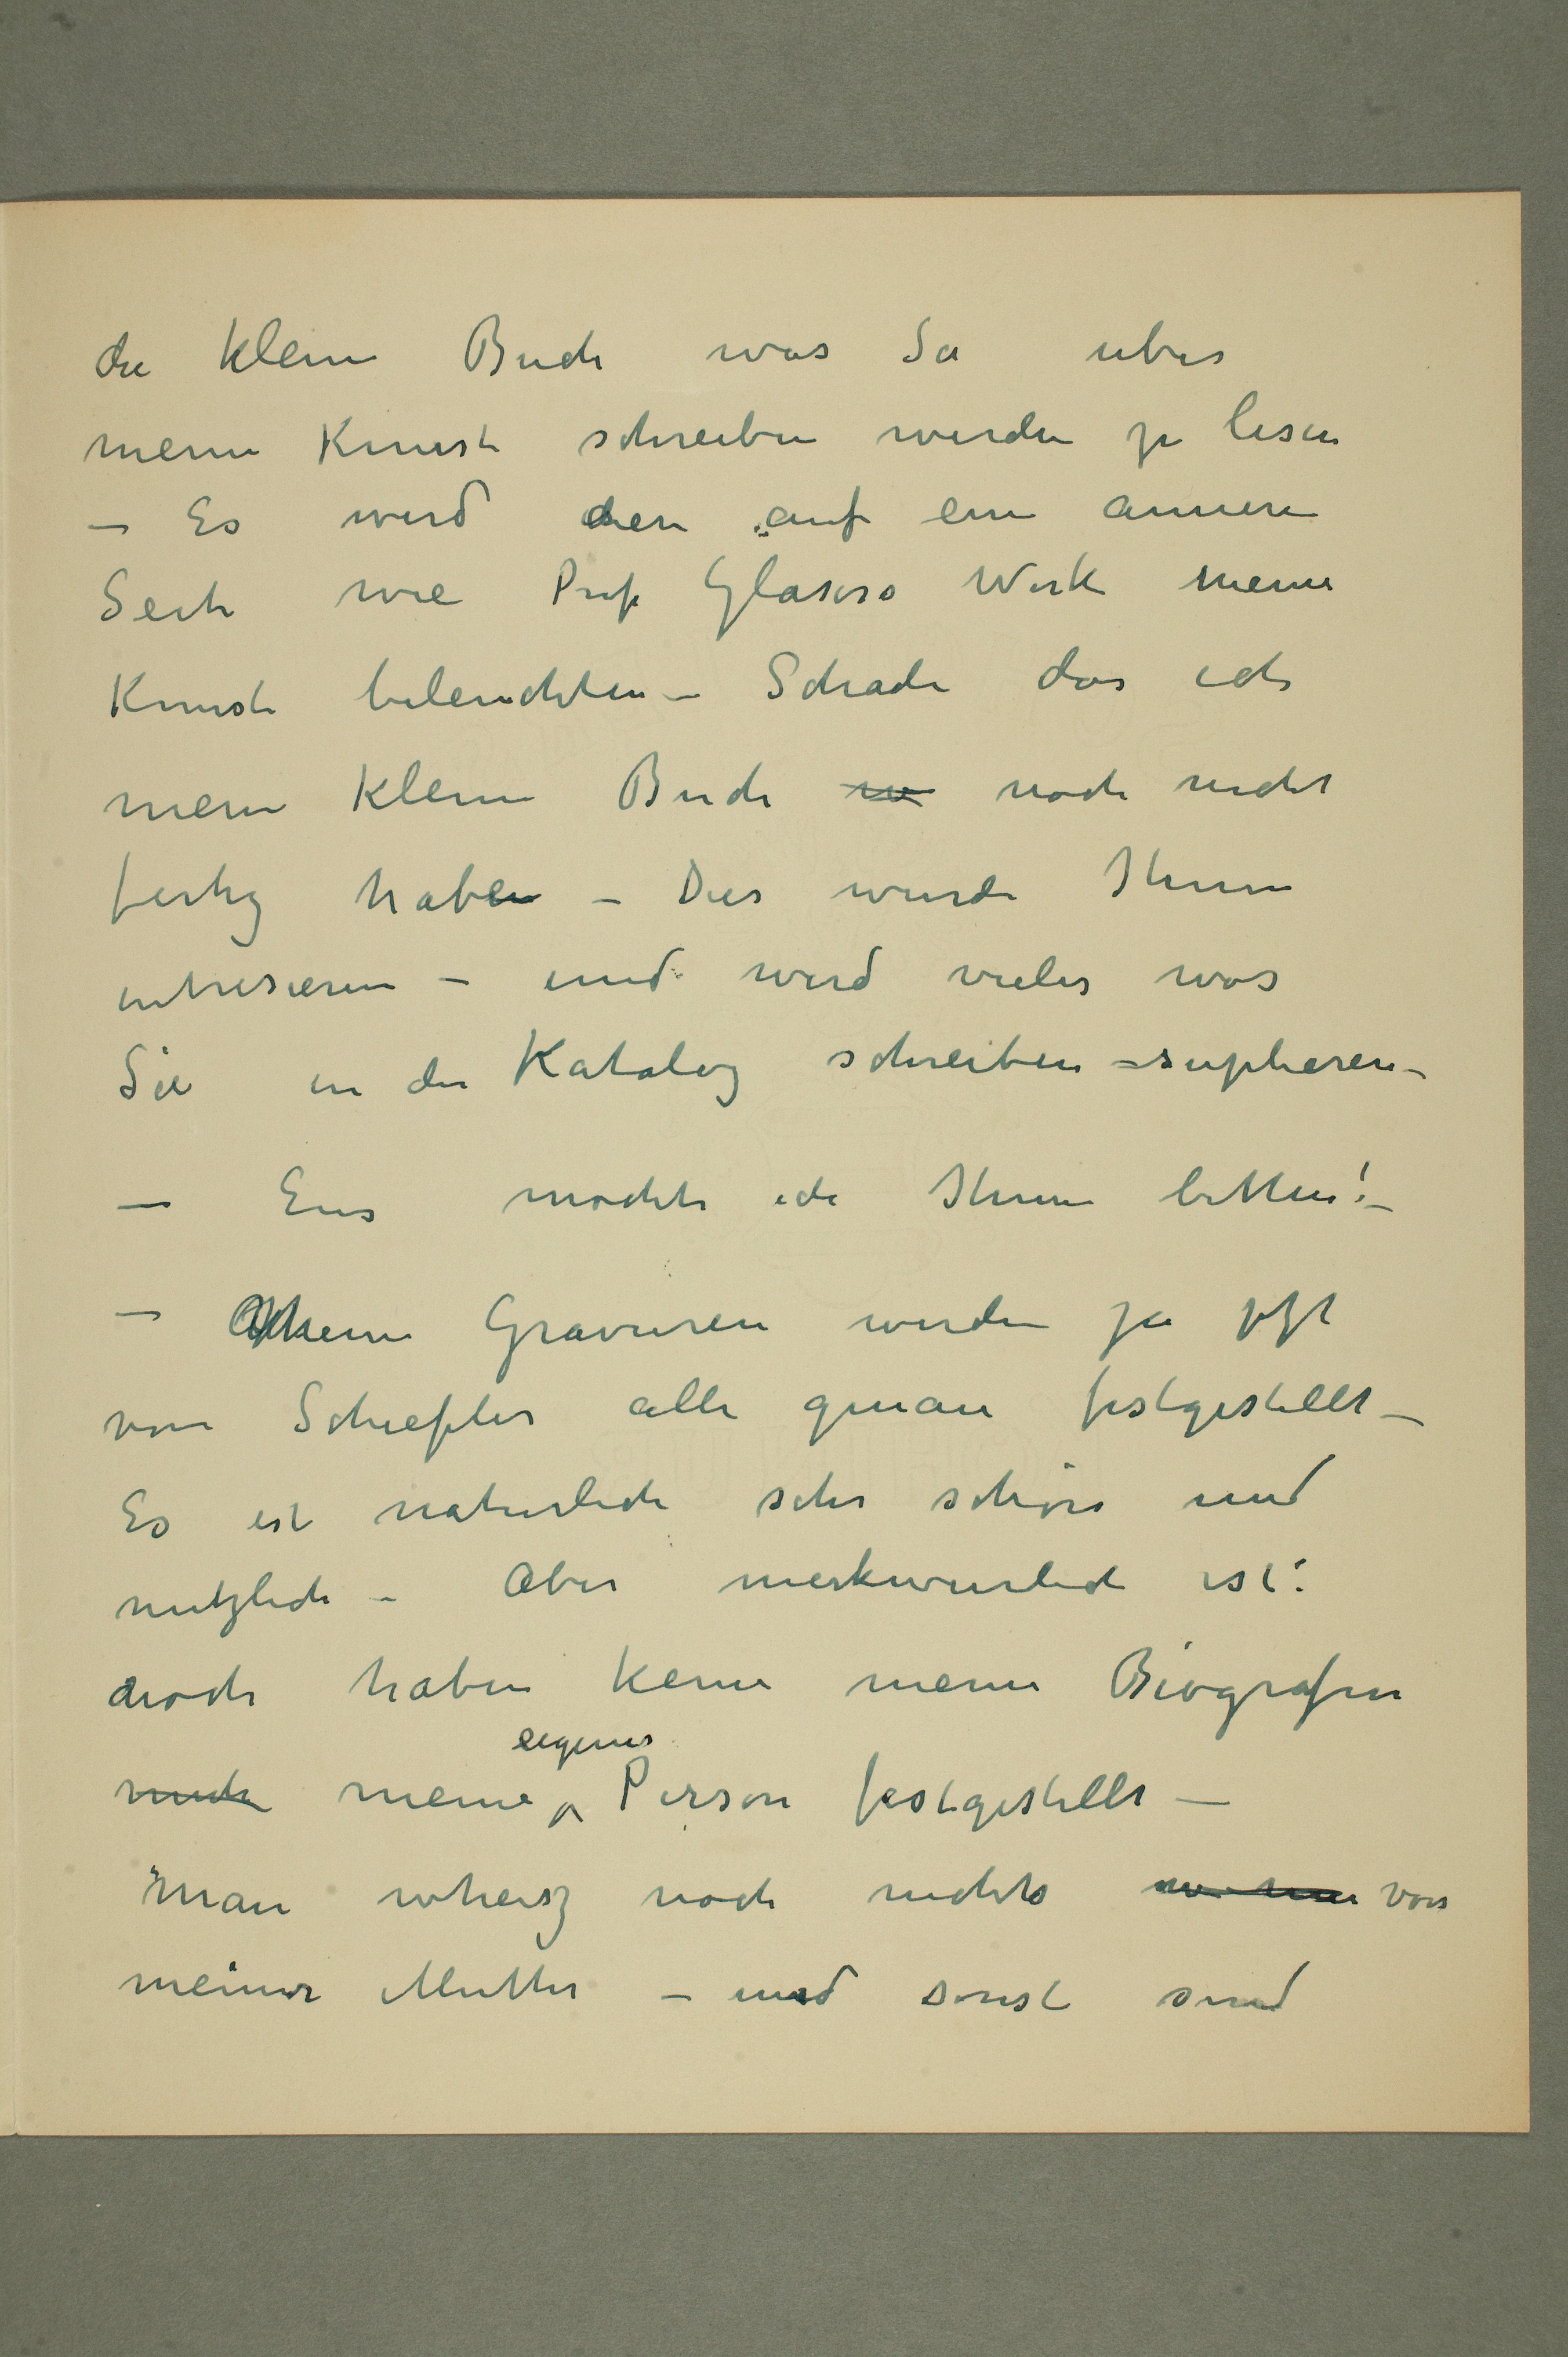 die kleine Buch was Sa uber
meine Kunst schreiben werden zu lesen
– Es wird dien auf eine annere
Seite wie Prof Glasers Werk meine
Kunst beleuchten – Schade das ich
meine kleine Buch w noch nicht
fertig haben – Dies wurde Ihnen
intresieren – und wird vieles was
Sie in die Katalog schreiben – suplieren –
– Eins mochte ich Ihnen bitten! –
– Meine Gravuren werden ja jetzt
von Schiefler alle genau festgestellt –
Es ist naturlich sehr schön und
nutzlich – Aber merkwurlich ist:
noch haben keine meine Biografen
meine eigenes Person festgestellt –
Man wheisz noch nichts von
meiner Mutter – und sonst sind